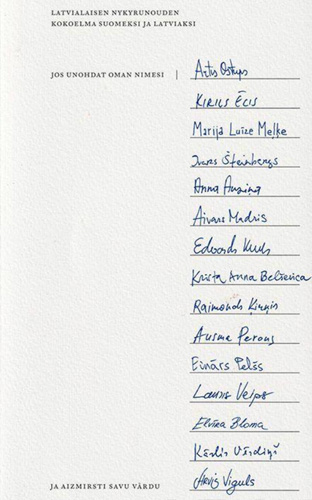 LATVIALAISEN NYKYRUNOUDEN
KOKOELMA SUOMEKSI JA LATVIAKSI
JOS UNOHDAT OMAN NIMESI
Artis Ostups
KIRILS ĒCIS
Marija Luīze Meļķe
Ivars Šteinbergs
Anna Auziņa
Aivars Madris
Edvards Kuks
Krista Anna Belševica
Raimonds Ķirķis
Ausma Perons
Einārs Pelšs
Lauris Veips
Elvīra Bloma
Kārlis Vērdiņš
Arvis Viguls
JA AIZMIRSTI SAVU VĀRDU